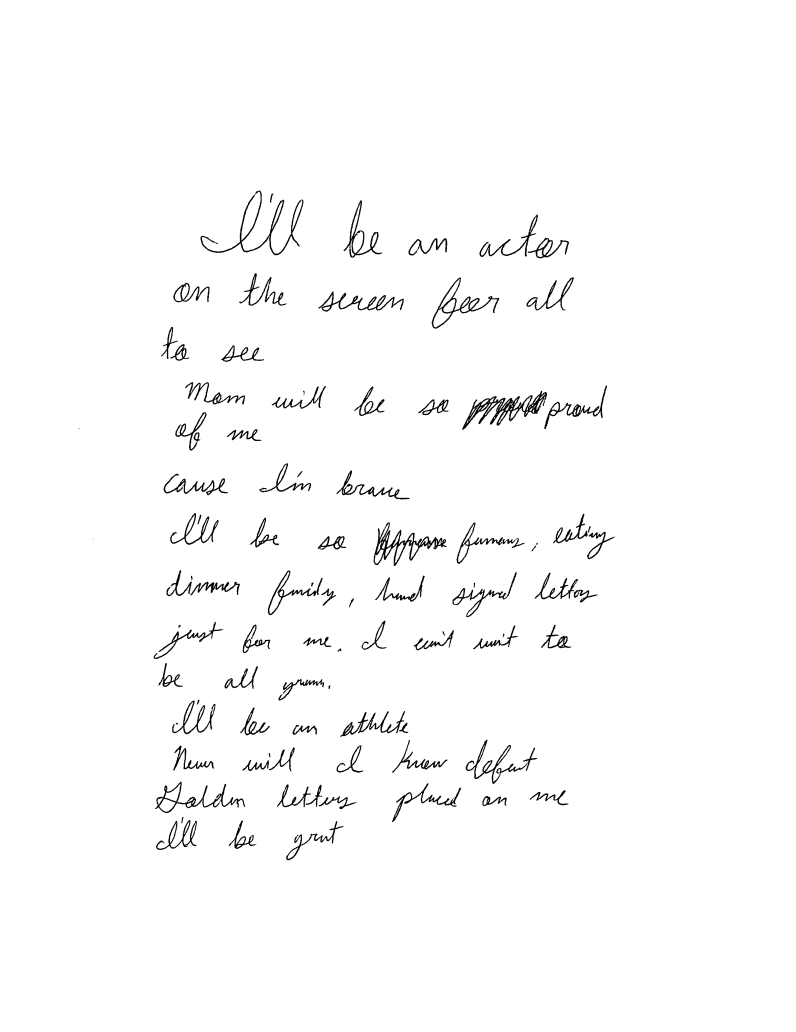 I'll be an actor
on the screen foor all
to see
Mom will be so proud
of me
cause I'm brave
I'll be so famous, eating
dinner family, hand signed letters
just for me. I can't wait to
be all grown.
I'll be an athlete
Never will I know defeat
Golden letters placed on me
I'll be great